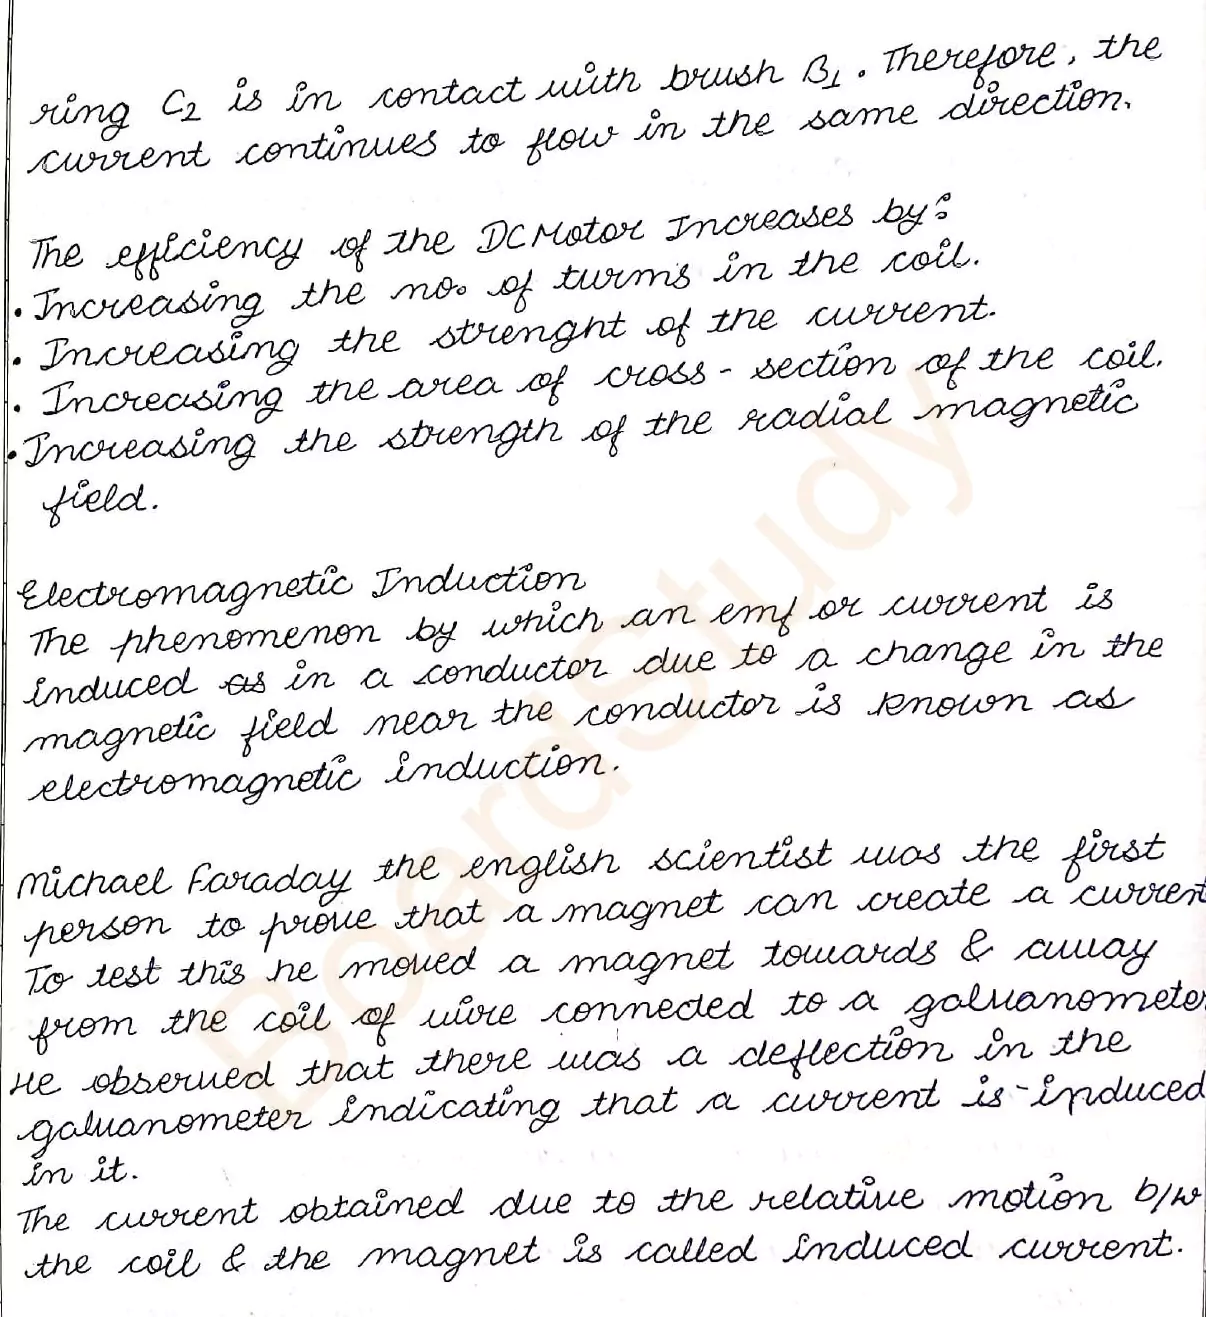 ring C2 is in contact with brush B1. Therefore, the
current continues to flow in the same direction.
The efficiency of the DC Motor Increases by:
• Increasing the no. of turns in the coil.
• Increasing the strenght of the current.
• Increasing the area of cross-section of the coil.
• Increasing the strength of the radial magnetic
field.
Electromagnetic Induction
The phenomenon by which an emf or current is
induced as in a conductor due to a change in the
magnetic field near the conductor is known as
electromagnetic induction.
Michael Faraday the english scientist was the first
person to prove that a magnet can create a current
To test this he moved a magnet towards & away
from the coil of wire connected to a galvanometer
He observed that there was a deflection in the
galvanometer indicating that a current is induced
in it.
The current obtained due to the relative motion b/w
the coil & the magnet is called induced current.
BoardStudy